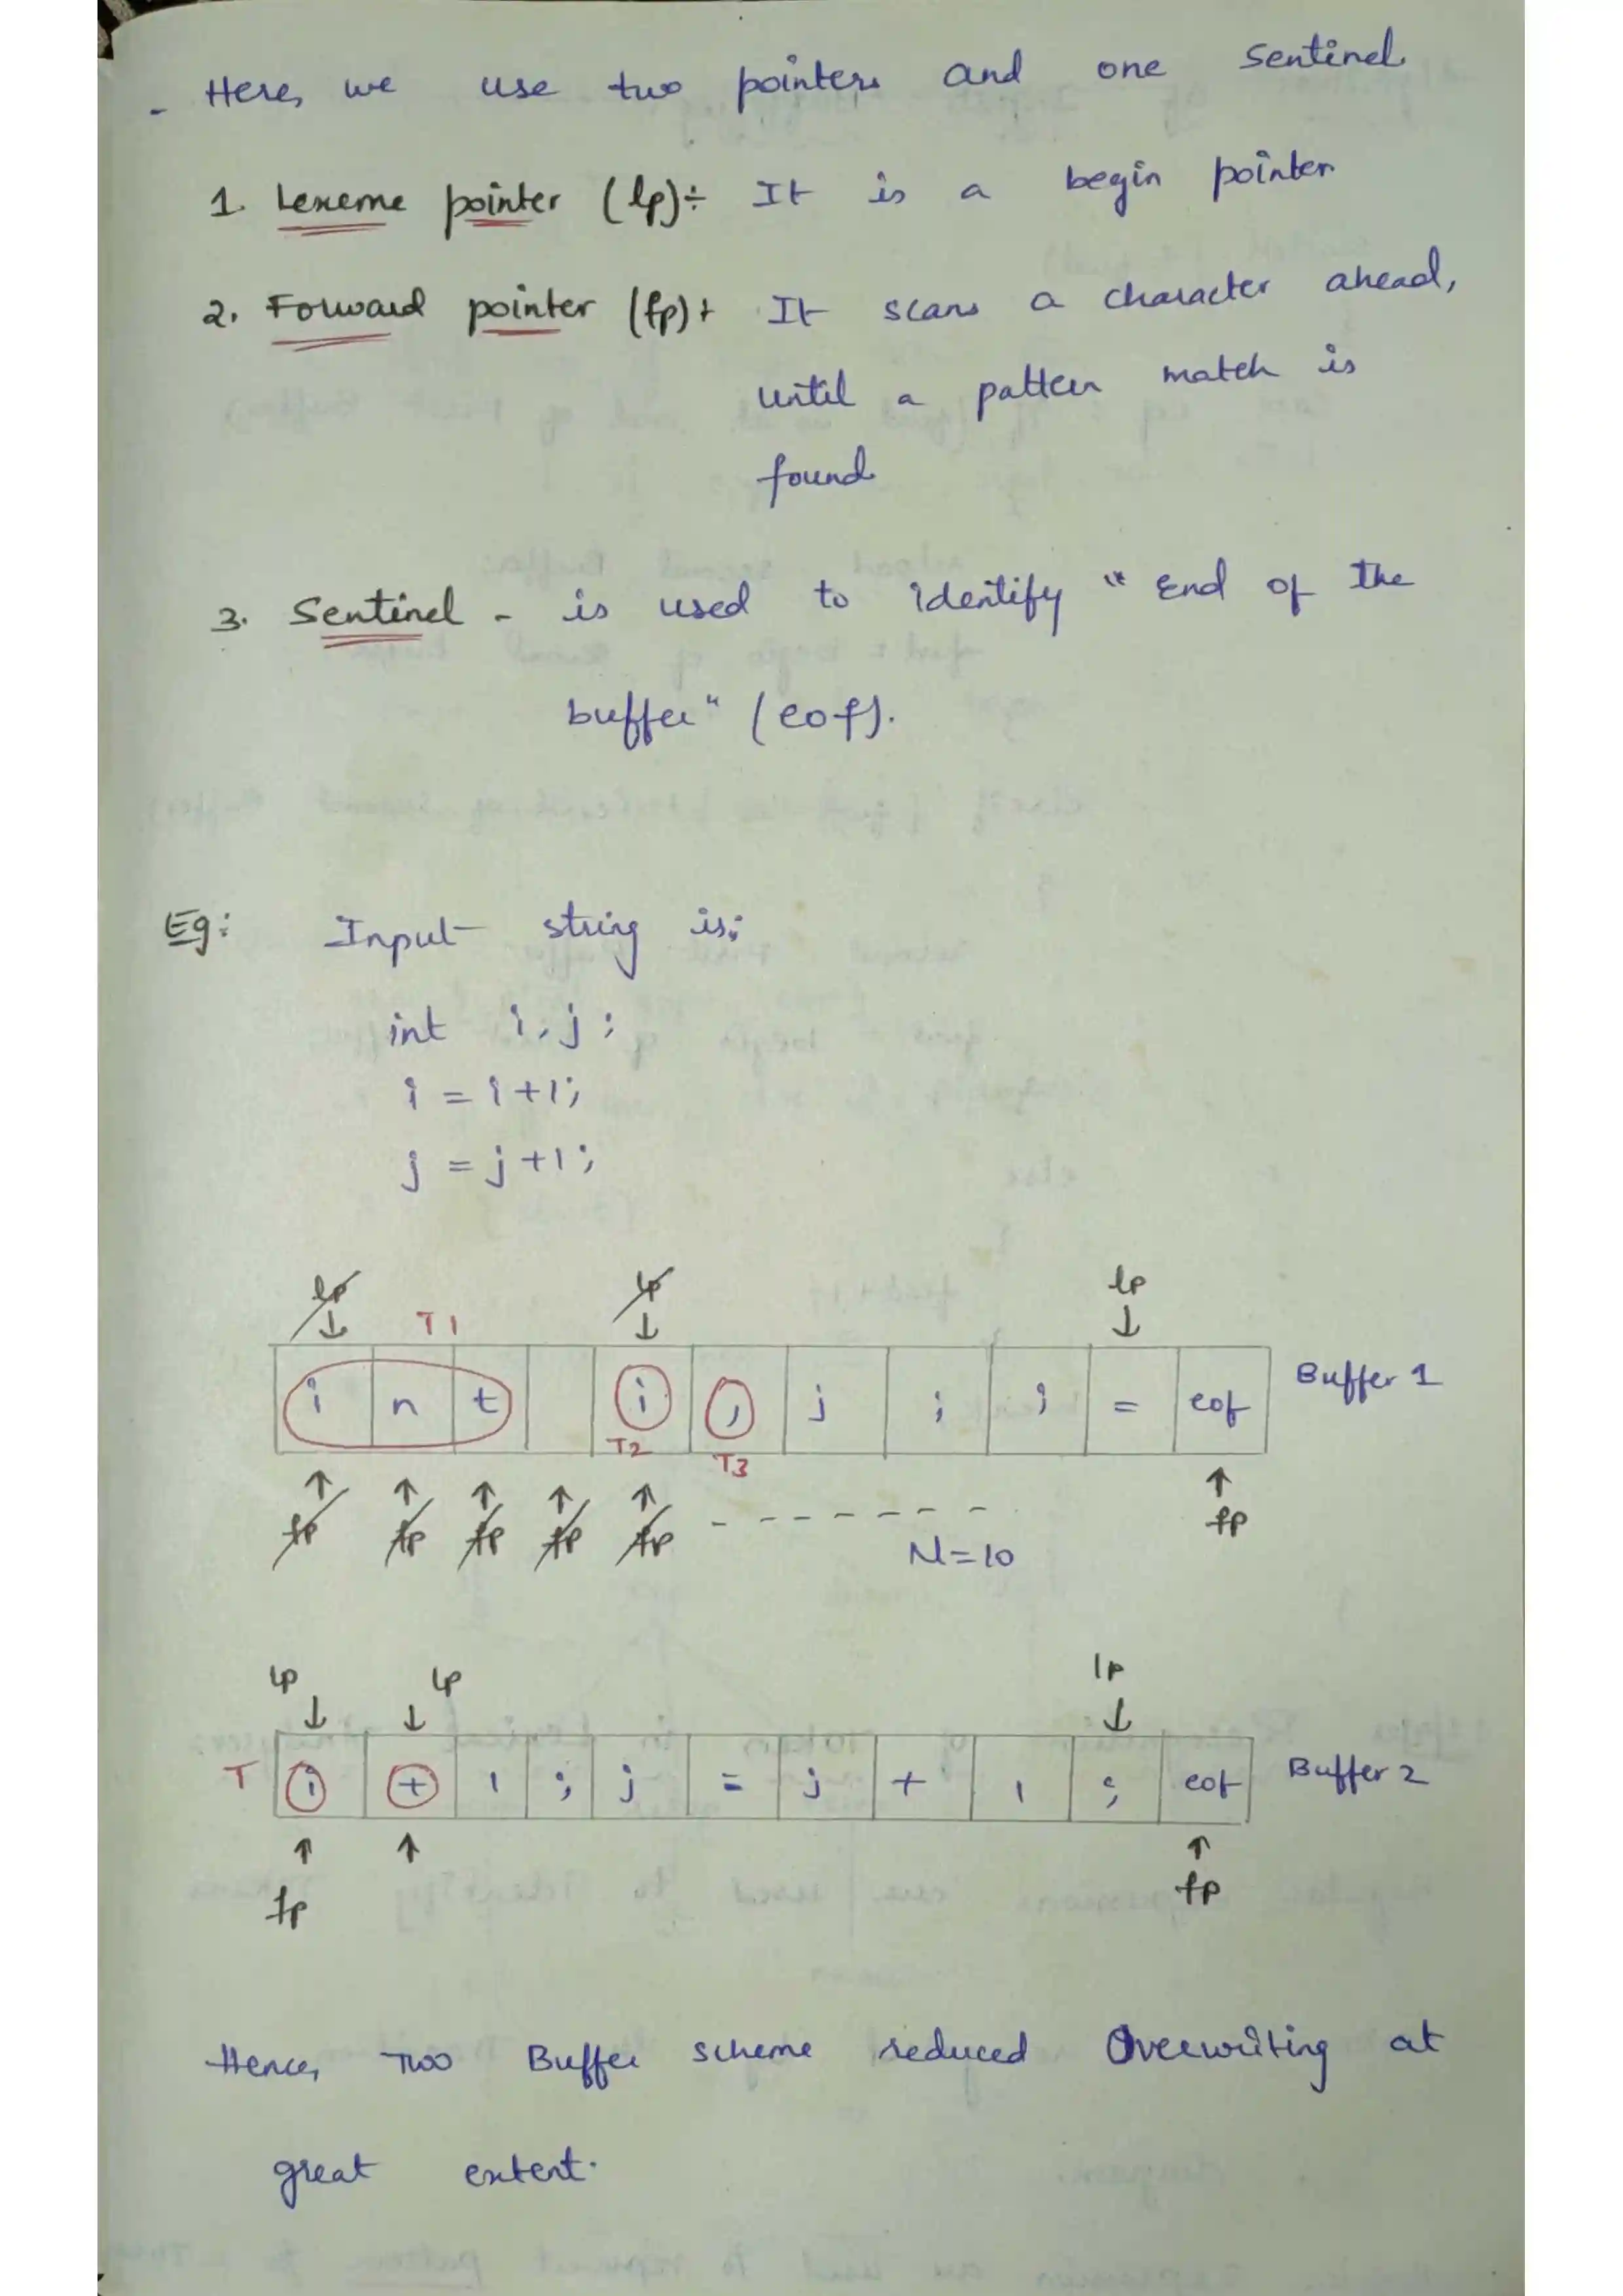 - Here, we use two pointers and one sentinel.
1. Lexeme pointer (lp)÷ It is a begin pointer
2. Forward pointer (fp)÷ It scans a character ahead,
until a pattern match is
found
3. Sentinel - is used to identify "End of the
buffer" (eof).
Eg: Input string is;
int i, j ;
i = i +1;
j = j +1;
lp lp lp
T1
i n t i , j ; i = eof Buffer 1
T2 T3
fp fp fp fp fp - - - - - - - - fp
N=10
lp lp lp
T i + 1 ; j = j + 1 ; eof Buffer 2
fp fp
Hence, Two Buffer scheme reduced Overwriting at
great extent.